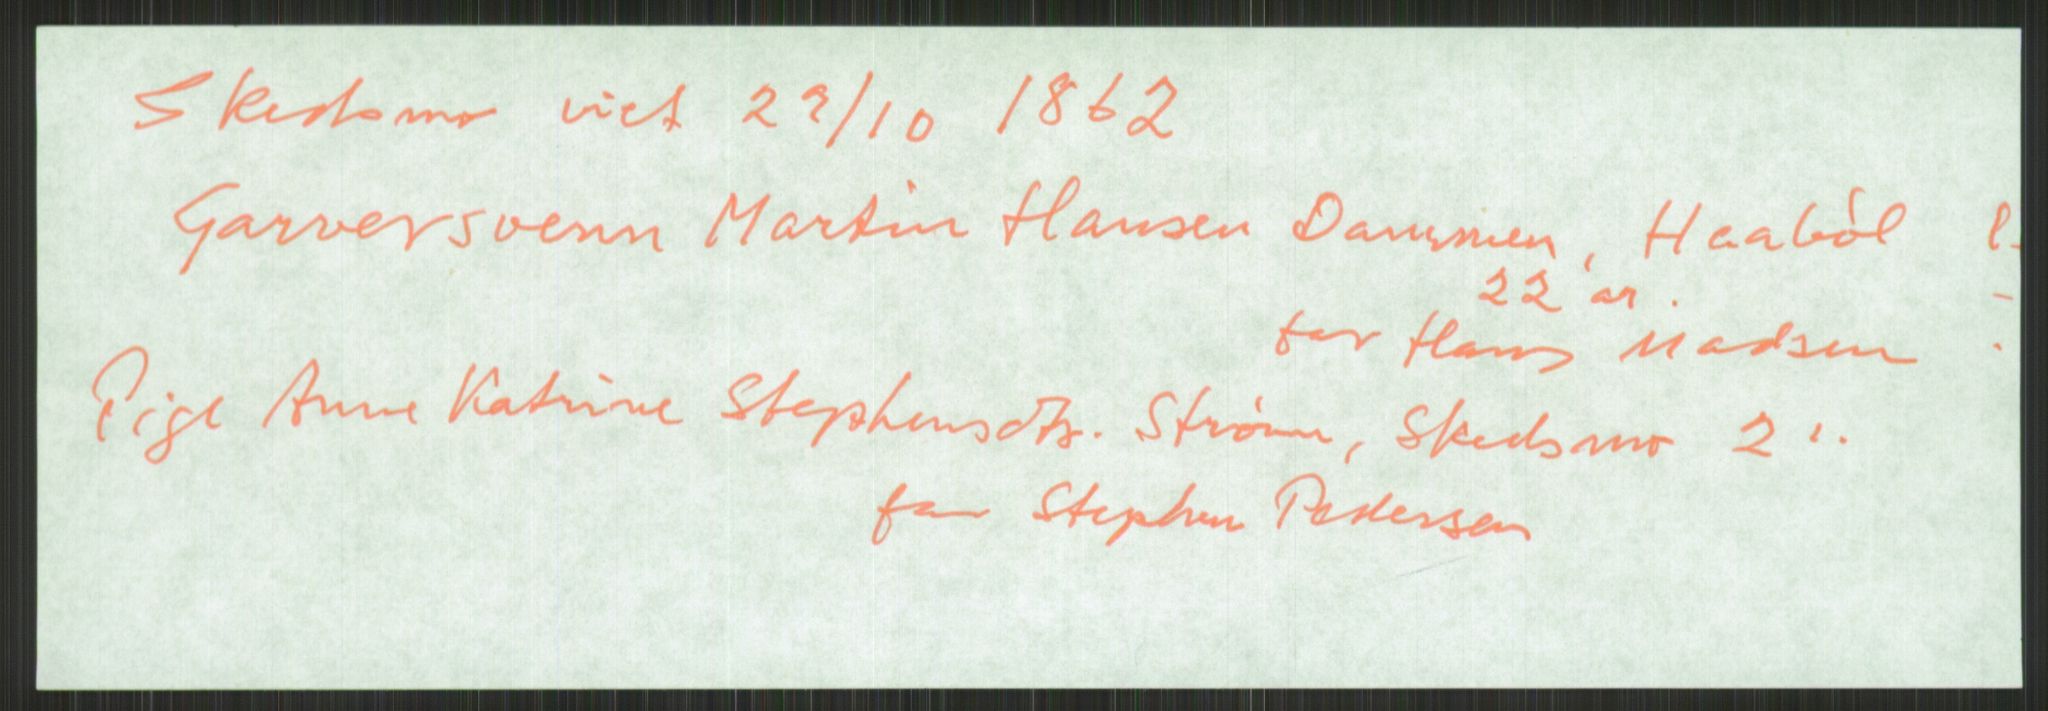 Skedsmo viet 29/10 1862
Garversvenn Martin Hansen Dammen, Haaböl
22 år.
far Hans Madsen
Pige Anne Katrine Stephensdtr. Strömm, Skedsmo 2
far Stephen Pedersen